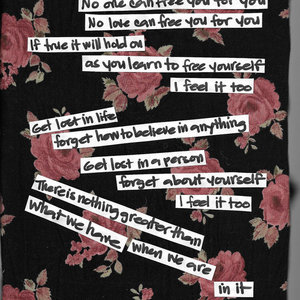 No one can free you for you
No love can free you for you
If true it will hold on
as you learn to free yourself
I feel it too
Get lost in life
forget how to believe in anything
Get lost in a person
forget about yourself
I feel it too
There is nothing greater than
what we have, when we are
in it